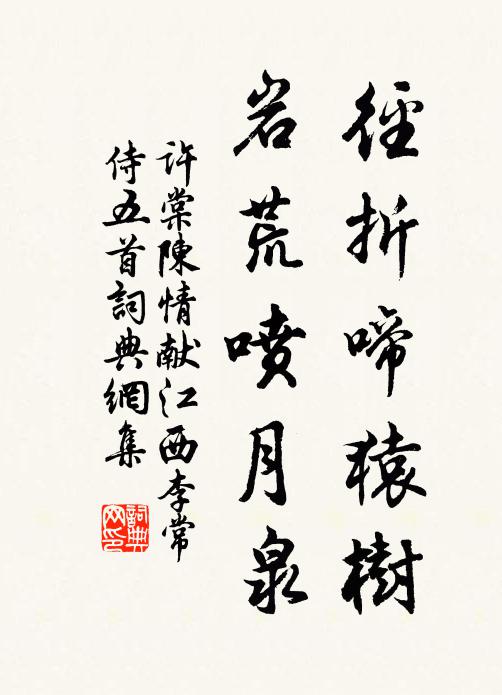 徑折啼猿樹
岩荒噴月泉
許棠陳情献江西李常
侍五首詞典網集
詞典
网印